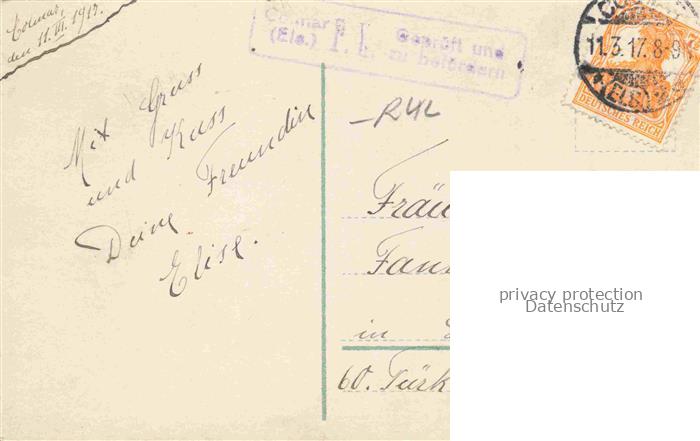 Colmar,
den 11. III. 1917.
Colmar
(Els.)
F. a.
Geprüft und
zu befördern
11.3.17. 8-9
(ELS)
DEUTSCHES REICH
Mit Gruss
und Kuss
Deine Freundin
Elise.
Fräu
Fan
in
60. Türk
privacy protection
Datenschutz